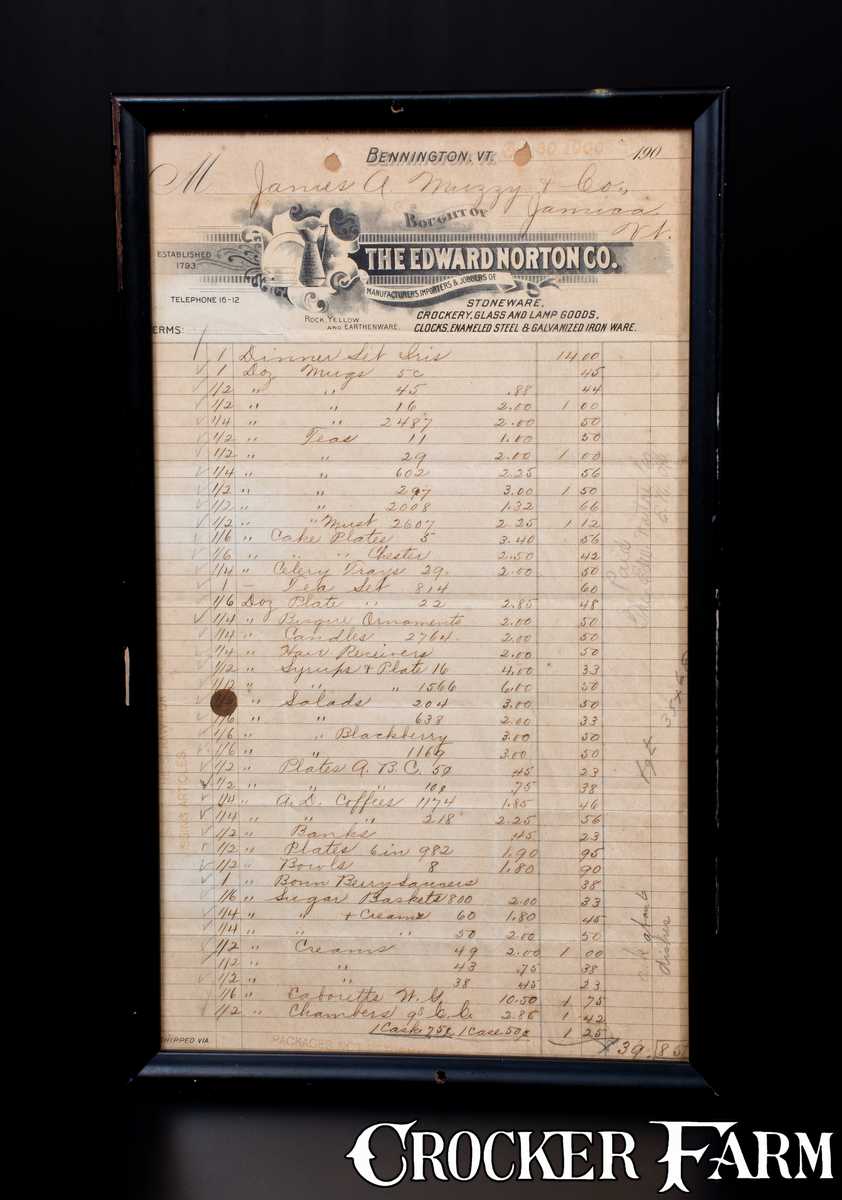 BENNINGTON, VT. 190
M James A. Muzzy & Co.,
Jamica
Vt.
BOUGHT OF
THE EDWARD NORTON CO.
ESTABLISHED
1793.
MANUFACTURERS, IMPORTERS & JOBBERS OF
TELEPHONE 16-12
STONEWARE,
CROCKERY, GLASS AND LAMP GOODS,
CLOCKS, ENAMELED STEEL & GALVANIZED IRON WARE.
ROCK, YELLOW
AND EARTHENWARE.
ERMS:
1 Dinner Set Iris 14 00
1 Doz Mugs 5c 45
1/2 " " 45 .88 44
1/2 " " 16 2.00 1 00
1/4 " " 2487 2.00 50
1/2 " Teas 11 1.00 50
1/2 " " 29 2.00 1 00
1/4 " " 602 2.25 56
1/2 " " 297 3.00 1 50
1/2 " " 2008 1.32 66
1/2 " " Must 2607 2.25 1 12
1/6 " Cake Plates 5 3.40 56
1/6 " " " Chester 2.50 42
1/4 " Celery Trays 29 2.00 50
1 - Tea Set 814 60
1/6 Doz Plate " 22 2.85 48
1/4 " Bisque Ornaments 2.00 50
1/4 " Candles 2764 2.00 50
1/4 " Hair Receivers 2.00 50
1/12 " Syrups & Plate 16 4.00 33
1/12 " " " 1566 6.00 50
" Salads 204 3.00 50
1/6 " " 638 2.00 33
1/6 " " Blackberry 3.00 50
1/6 " " 1169 3.00 50
1/2 " Plates A. B. C. 50 .45 23
1/2 " " " 108 .75 38
1/4 " A. D. Coffees 1174 1.85 46
1/4 " " " 218 2.25 56
1/2 " Banks .45 23
1/2 " Plates 6 in 982 1.90 95
1/2 " Bowls 8 1.80 90
1 " Bonn Berry Saucers 38
1/6 " Sugar Baskets 800 2.00 33
1/4 " " & Creams 60 1.80 45
1/4 " " " 50 2.00 50
1/2 " Creams 49 2.00 1 00
1/2 " " 43 .75 38
1/2 " " 38 .45 23
1/6 " Cabaretts W. G. 10.50 1 75
1/2 " Chambers 9s C.C. 2.85 1 42
1 Cask 75c 1 Case 50c 1 25
$39.85
HIPPED VIA
Paid
ask about
dishes
CROCKER FARM